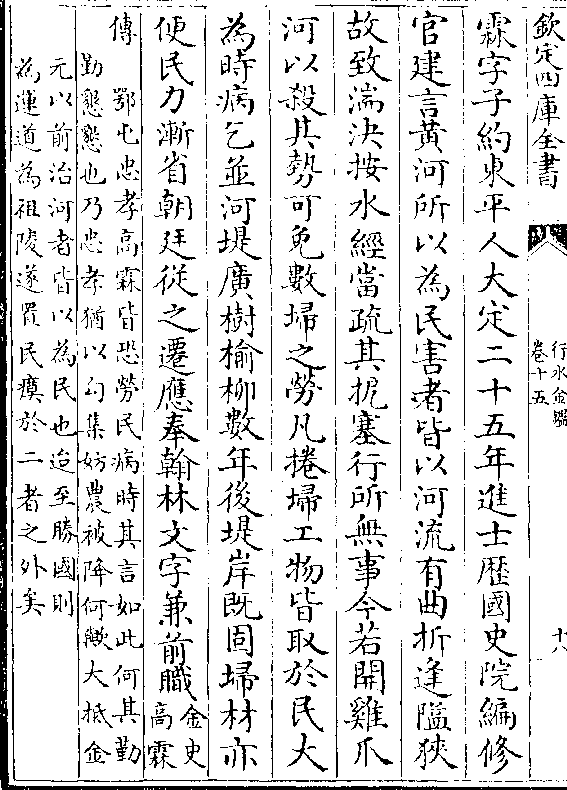 欽定四庫全書
行水金鑑
卷十五
十八
霖字子約東平人大定二十五年進士歷國史院編修
官建言黃河所以為民害者皆以河流有曲折逢隘狹
故致湍決按水經當疏其扼塞行所無事今若開雞爪
河以殺其勢可免數埽之勞凡捲埽工物皆取於民大
為時病乞並河堤廣樹榆柳數年後堤岸既固埽材亦
便民力漸省朝廷從之遷應奉翰林文字兼前職金史
高霖
傳 鄂屯忠孝高霖皆恐勞民病時其言如此何其勤
勤懇懇也乃忠孝猶以勾集妨農被降何歟大抵金
元以前治河者皆以為民也迨至勝國則
為運道為祖陵遂置民瘼於二者之外矣